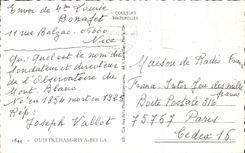 COULEURS
NATURELLES
Envoi de 4me Louise
Bonafet
11 rue Balzac. 06000
Nice
Qu: Quel est le nom du
fondateur et directeur
de l'Observatoire du
Mont. Blanc.
Né en 1854 mort en 1925
Rep:
Joseph Vallot
OUISTREHAM-RIVA-BELLA
Maison de Radio France
France Inter Jeu des mille
francs
Boite Postale 316
75767 Paris
Cedex 16